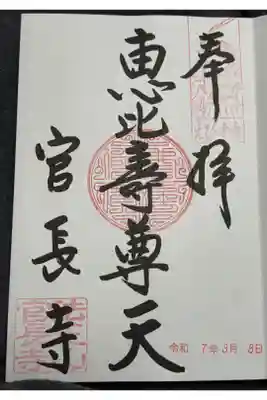 奉拝
恵比壽尊天
官長寺
令和 7年 3月 8日